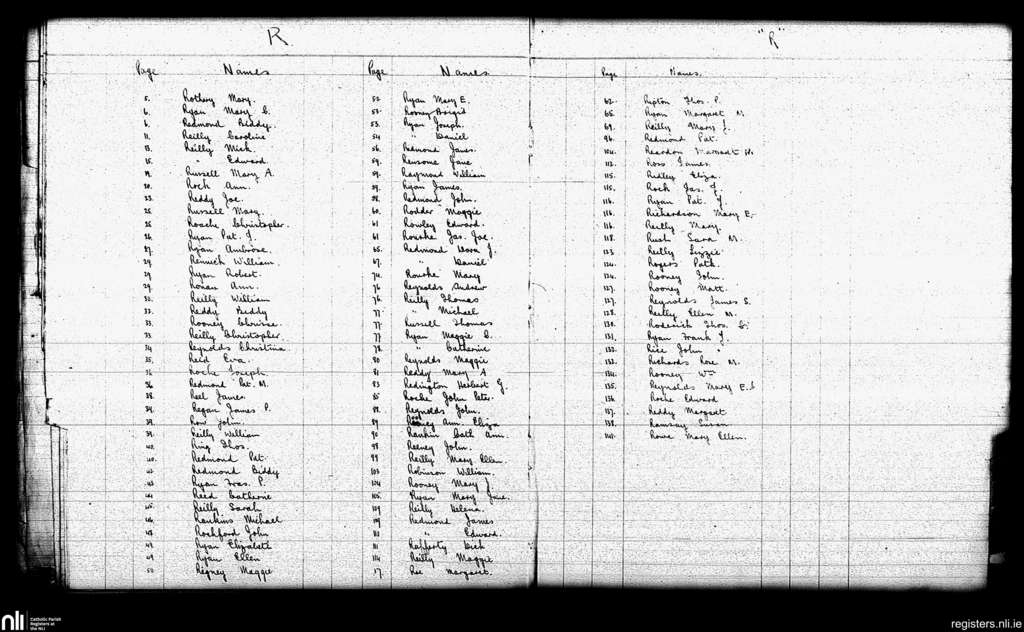 R
"R"
Page Names
5. Rothery Mary.
6. Ryan Mary C.
6. Redmond Biddy.
11. Reilly Caroline
13. Reilly Mick.
15. " Edward.
19. Russell Mary A.
20. Roch Ann.
23. Reddy Joe.
25. Russell Mary.
25 Roache Christopher.
26. Ryan Pat. J.
27. Ryan Ambrose.
29. Rennick William
29 Ryan Robert.
29. Ronan Ann.
32. Reilly William
33. Reddy Biddy
33. Rooney Chrisse.
33. Reilly Christopher.
34 Reynolds Christina
35. Reid Eva.
36 Roche Joseph.
36 Redmond Pat. M.
38. Reel James.
39. Regan James P.
39. Row John.
39. Reilly William
40. Ring Thos.
40. Redmond Pat.
42. Redmond Biddy
43 Ryan Fras. P.
44. Reed Catherine
45. Reilly Sarah
46. Rankins Michael
48. Rochford John
49. Ryan Elizabeth
49 Ryan Ellen
50 Regney Maggie
Page Names.
52. Ryan Mary E.
53. Rooney Bridget
53. Ryan Joseph.
54 " Daniel
56. Redmond James.
59. Ransome Jane
59. Raymond William
59. Ryan James.
58. Redmond John.
60. Rodder Maggie
61 Rowley Edward.
61 Rourke Jas. Joe.
65. Redmond Dora J.
67. " Daniel
74. Rourke Mary
76 Reynolds Andrew
76. Reilly Thomas
77 " Michael
77. Russell Thomas
77. Ryan Maggie C.
78. " Catherine
80 Reynolds Maggie
81 Reddy Mary A
83 Redington Herbert G.
85 Roche John Peter.
88. Reynolds John.
89 Ann Eliza
90 Rankin Cath Ann.
98 Reeney John.
99 Reilly Mary Ellen.
103 Robinson William.
104 Rooney Mary J.
105. Ryan Mary Jane.
109 Reilly Helena.
109 Redmond James
111 " Edward.
111 Rafferty Dick
114 Reilly Maggie
17. Roe Margaret.
Page Names.
62. Ripton Thos. P.
65. Ryan Margaret M.
69. Reilly Mary J.
96. Redmond Pat.
104. Reardon Margaret
112. Ross James.
115. Ridley Eliza.
115. Rock Jas. J.
116. Ryan Pat. J.
116. Richardson Mary E.
116. Reilly Mary.
118. Rush Sara M.
123. Reilly Lizzie.
124. Rogers Patk.
124. Rooney John.
127. Rooney Matt.
127. Reynolds James S.
128. Reilly Ellen M.
130. Roderick Thos. G.
131. Ryan Frank J.
132. Rice John
132. Richards Rose M.
134. Rooney Wm
135. Reynolds Mary E.
136 Roche Edward
137. Reddy Margaret
138. Ramsay Susan
141. Rowe Mary Ellen.
nli Catholic Parish Registers at the NLI
registers.nli.ie